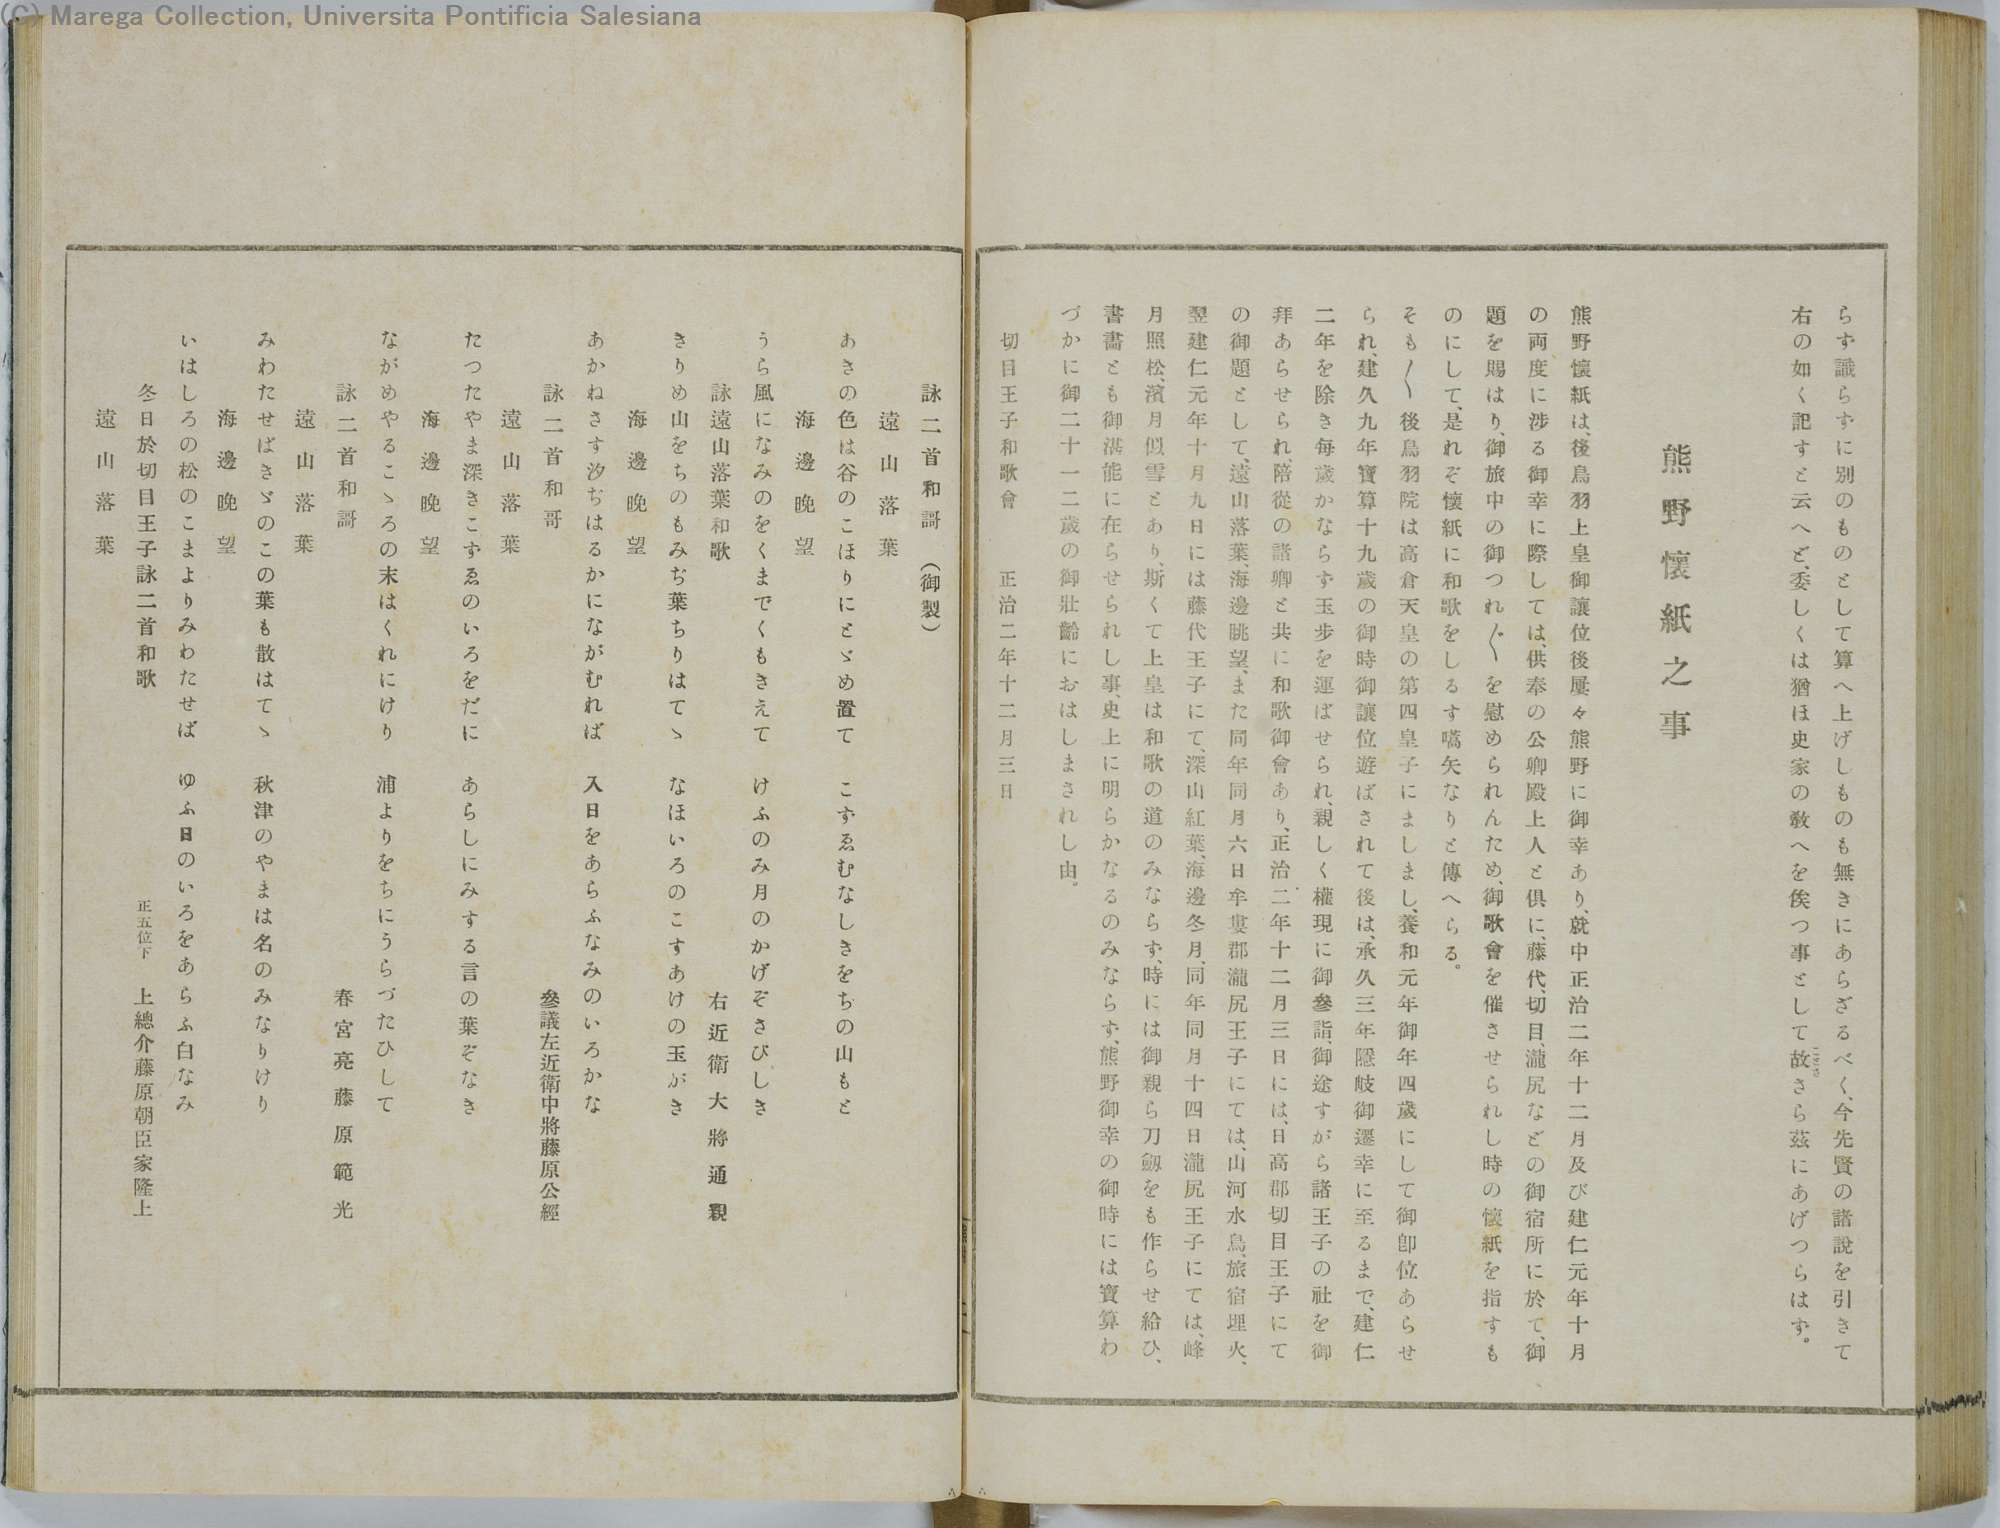 (C) Marega Collection, Universita Pontificia Salesiana
らず識らずに別のものとして算へ上げしものも無きにあらざるべく、今先賢の諸說を引きて
右の如く記すと云へど、委しくは猶ほ史家の敎へを俟つ事として故さら茲にあげつらはず。
熊野懷紙之事
熊野懷紙は、後鳥羽上皇御讓位後屢々熊野に御幸あり、就中正治二年十二月及び建仁元年十月
の両度に涉る御幸に際しては、供奉の公卿殿上人と俱に、藤代、切目、瀧尻などの御宿所に於て、御
題を賜はり、御旅中の御つれ〴〵を慰められんため、御歌會を催させられし時の懷紙を指すも
のにして、是れぞ懷紙に和歌をしるす嚆矢なりと傳へらる。
そも〳〵後鳥羽院は高倉天皇の第四皇子にましまし、養和元年御年四歲にして御卽位あらせ
られ、建久九年寶算十九歲の御時御讓位遊ばされて後は、承久三年隱岐御遷幸に至るまで、建仁
二年を除き每歲かならず玉步を運ばせられ、親しく權現に御參詣、御途すがら諸王子の社を御
拜あらせられ、陪從の諸卿と共に和歌御會あり、正治二年十二月三日には、日高郡切目王子にて
の御題として、遠山落葉、海邊眺望、また同年同月六日牟婁郡瀧尻王子にては、山河水鳥、旅宿埋火、
翌建仁元年十月九日には藤代王子にて、深山紅葉、海邊冬月、同年同月十四日瀧尻王子にては、峰
月照松、濱月似雪とあり、斯くて上皇は和歌の道のみならず、時には御親ら刀劔をも作らせ給ひ、
書畵とも御湛能に在らせられし事、史上に明らかなるのみならず、熊野御幸の御時には寶算わ
づかに御二十一二歲の御壯齡におはしまされし由。
切目王子和歌會　正治二年十二月三日
詠二首和謌（御製）
遠山落葉
あさの色は谷のこほりにとゞめ置て　こずゑむなしきをちの山もと
海邊晚望
うら風になみのをくまでくもさえて　けふのみ月のかげぞさびしき
詠遠山落葉和歌　右近衛大將通親
きりめ山をちのもみぢ葉ちりはてゝ　なほいろのこすあけの玉がき
海邊晚望
あかねさす汐ぢはるかにながむれば　入日をあらふなみのいろかな
詠二首和哥　參議左近衛中將藤原公經
遠山落葉
たつたやま深きこずゑのいろをだに　あらしにみする言の葉ぞなき
海邊晚望
ながめやるこゝろの末はくれにけり　浦よりをちにうらづたひして
詠二首和謌　春宮亮藤原範光
遠山落葉
みわたせばきゞのこの葉も散はてゝ　秋津のやまは名のみなりけり
海邊晚望
いはしろの松のこまよりみわたせば　ゆふ日のいろをあらふ白なみ
冬日於切目王子詠二首和歌　正五位下　上總介藤原朝臣家隆上
遠山落葉